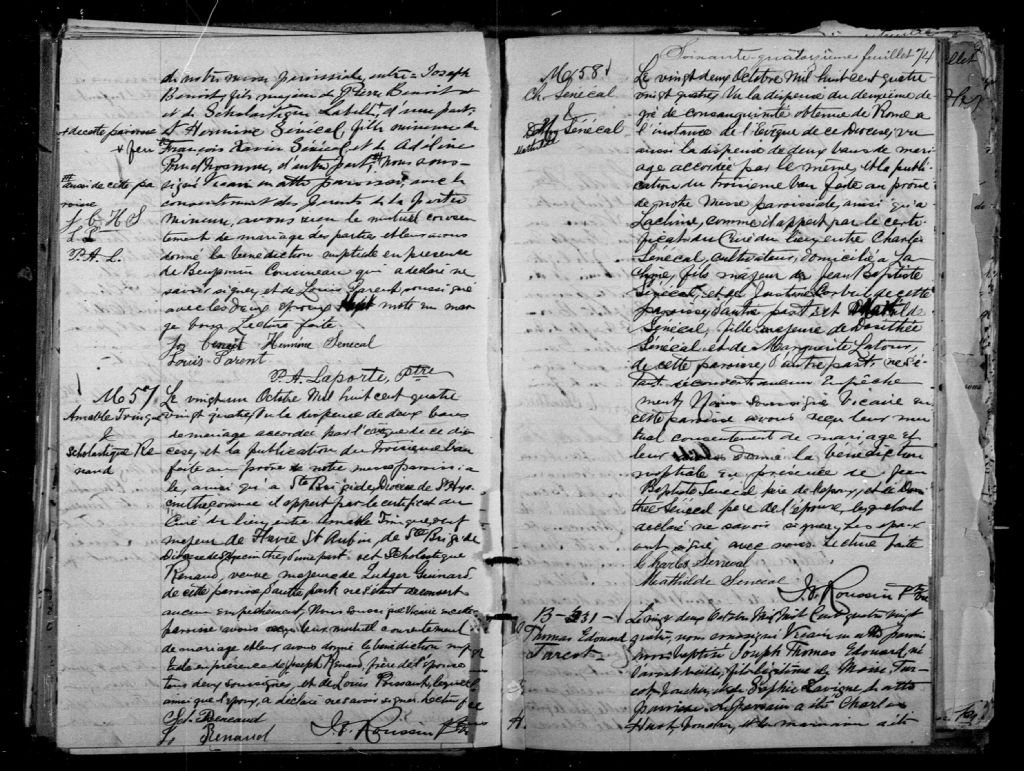 de notre messe paroissiale, entre Joseph
Benoit, fils majeur de Pierre Benoit +
et de Scholastique Labelle, d'une part,
+ de cette paroisse
et Hermine Sénécal, fille mineure de
+ feu
François Xavier Sénécal et de Adéline
d'autre part, Nous sous-
aussi de cette pa
roisse
signé Vicaire en cette paroisse, avec le
consentement des parents de la partie
mineure, avons reçu le mutuel consen-
tement de mariage des parties et leur avons
J. B. H. S.
L. P.
P. A. L.
donné la bénédiction nuptiale en présence
de Benjamin Cousineau qui a déclaré ne
savoir signer, et de Louis Parent, soussigné
avec les deux époux mots en mar
ge bons. Lecture faite
Jos Benoit Hermine Senecal
Louis Parent
P. A. Laporte, Ptre
M 57
Amable Tringue
&
Scholastique Re
naud
Le vingt un Octobre Mil huit cent quatre
vingt quatre, Vu la dispense de deux bans
de mariage accordée par l'évêque de ce dio
cèse, et la publication du troisième ban
faite au prône de notre messe paroissia
le ainsi qu'à Ste Brigide, Diocèse de St Hya
cinthe comme il appert par le certificat du
Curé du lieu, entre Amable Tringue, veuf
majeur de Flavie St Aubin, de Ste Brigide
Diocèse de St Hyacinthe, d'une part, et Scholastique
Renaud, veuve majeure de Ludger
de cette paroisse, d'autre part ne s'étant découvert
aucun empêchement, Nous soussigné Vicaire en cette
paroisse avons reçu leur mutuel consentement
de mariage et leur avons donné la bénédiction nup
tiale en présence de Joseph Renaud, frère de l'épouse
tous deux soussignés, et de Louis Poissant, lequel
ainsi que l'époux, a déclaré ne savoir signer. Lecture faite
Renaud
J. Renaud J. O. Roussin Ptre
Soixante-quatorzième feuillet 74
M 58
Ch. Sénécal
&
Sénécal
Mathilde
Le vingt deux Octobre Mil huit cent quatre
vingt quatre, Vu la dispense du deuxième de
gré de consanguinité obtenue de Rome à
l'instance de l'Evêque de ce Diocèse, vu
aussi la dispense de deux bans de mar
iage accordée par le même, et la publi
cation du troisième ban faite au prône
de notre Messe paroissiale, ainsi qu'à
Lachine, comme il appert par le certi
ficat du Curé du lieu, entre Charles
Sénécal, cultivateur, domicilié à La
chine, fils majeur de Jean Baptiste
Sénécal, et de Justine de cette
paroisse, d'autre part, et Mathilde
Sénécal, fille majeure de Dorithée
Sénécal et de Marguerite Latour,
de cette paroisse, d'autre part, ne s'é-
tant découvert aucun empêche
ment, Nous soussigné Vicaire en
cette paroisse avons reçu leur mu
tuel consentement de mariage et
leur donné la bénédiction
nuptiale en présence de Jean
Baptiste Sénécal père de l'époux, et de Dori
thée Sénécal père de l'épouse, lesquels ont
déclaré ne savoir signer, Les époux
ont signé avec nous. Lecture faite
Charles Senecal
Mathilde Senecal
J. O. Roussin Ptre
B-231
Thomas Edouard
Turcot
Le vingt deux Octobre Mil huit Cent quatre vingt
quatre, nous soussigné Vicaire en cette paroisse
avons baptisé Joseph Thomas Edouard, né
fils légitime de Moïse Tur
cot, boucher, et de Sophie Lavigne de cette
paroisse. Le parrain a été Charles
boucher, et la marraine a été